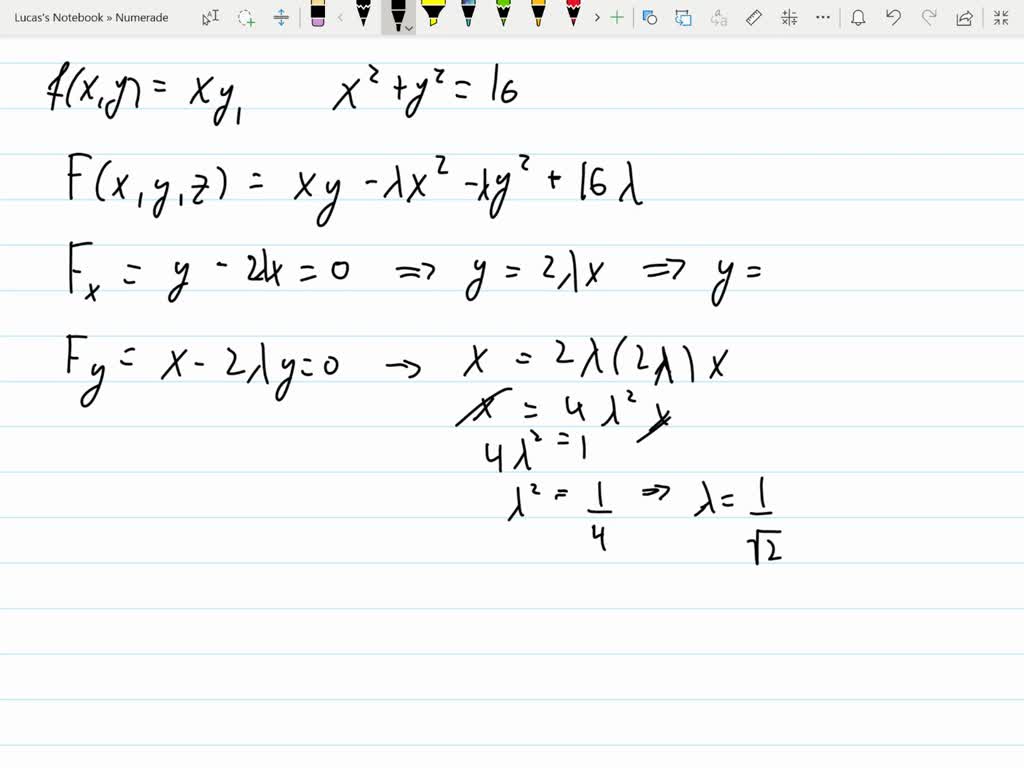 Lucas's Notebook » Numerade
f(x,y) = xy, x² + y² = 16
F(x,y,z) = xy - λx² - λy² + 16λ
Fx = y - 2λx = 0 => y = 2λx => y =
Fy = x - 2λy = 0 → x = 2λ(2λ)x
x = 4λ²x
4λ² = 1
λ² = 1/4 => λ = 1/√2